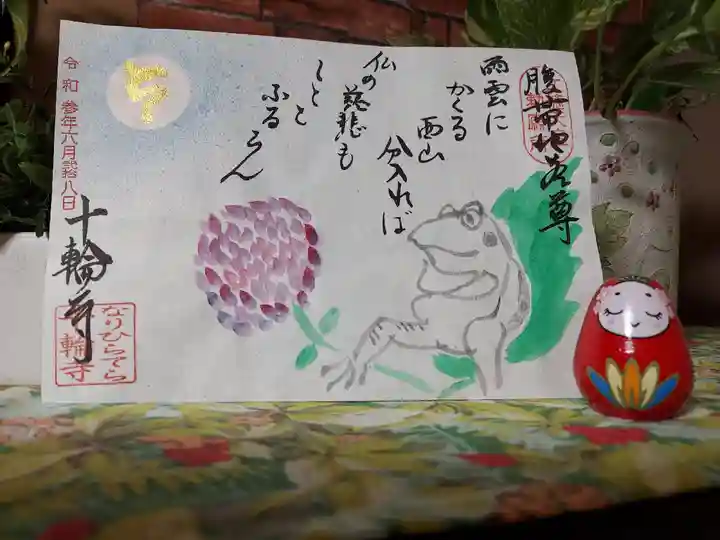 腹帯地蔵尊
雨雲に
かくる
西山
分入れば
仏の慈悲も
しとと
ふるらん
令和参年六月弐拾八日
十輪寺
なりひらてら
十輪寺